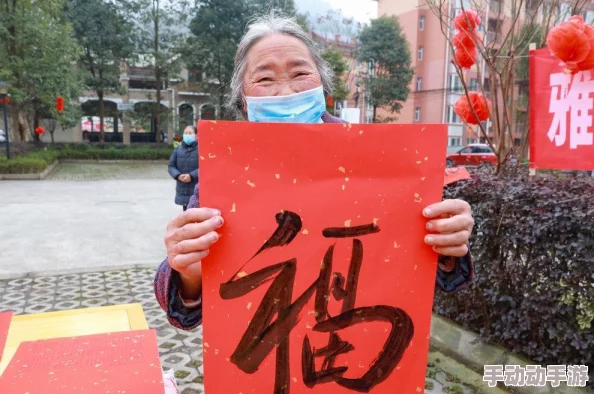 雅
福
手动动手游